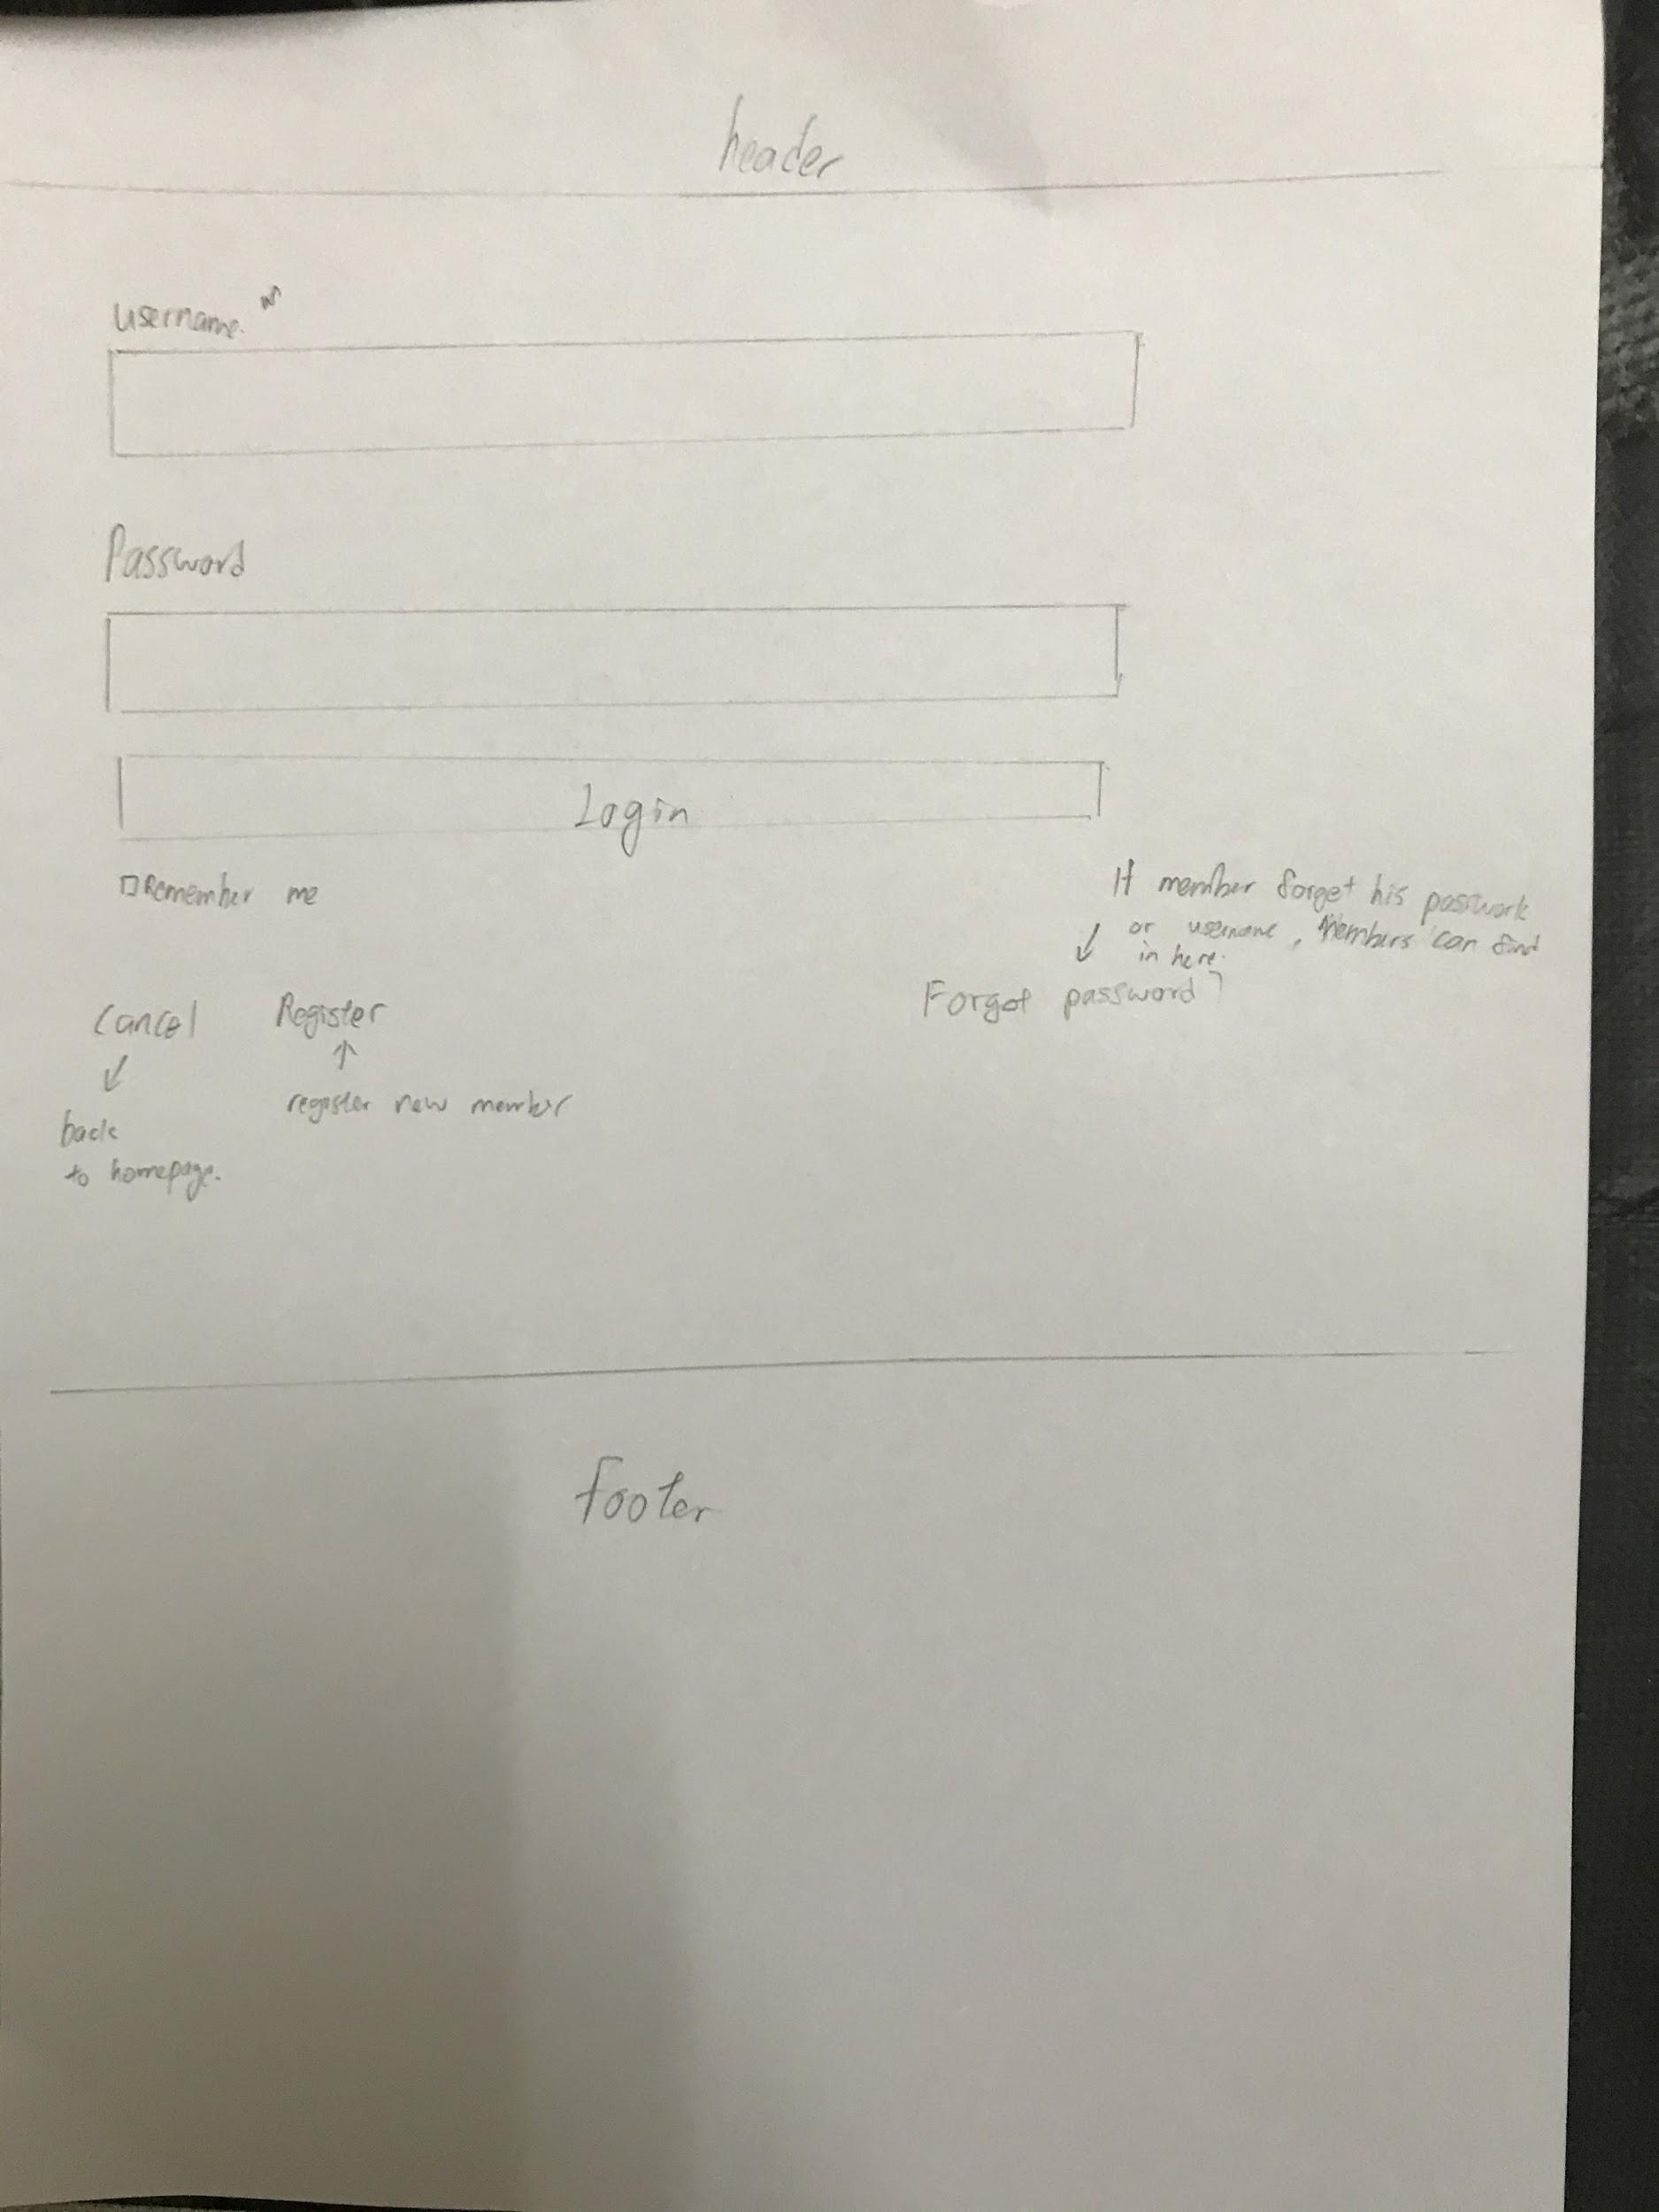 header
username.
Password
Login
Remember me
If member forget his passwork
or username, Members can find
in here.
Forgot password?
Cancel Register
register new member
back
to homepage.
footer